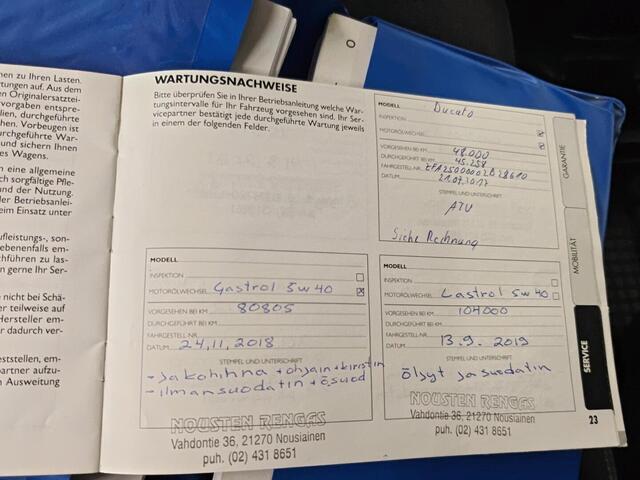 nen zu Ihren Lasten.
tungen auf. Aus dem
Originalersatztei-
vorgaben entspre-
dien, durchgeführte
hen. Vorbeugen ist
urchgeführte War-
und sichern Ihnen
es Wagens.
en eine allgemeine
ch sorgfältige Pfle-
und der Nutzung.
er Betriebsanlei-
eim Einsatz unter
ufleistungs-, son-
ebenenfalls em-
chführen zu las-
n gerne Ihr Ser-
e nicht bei Schä-
r teilweise auf
Hersteller em-
r dadurch ver-
eststellen, em-
partner aufzu-
n Ausweitung
WARTUNGSNACHWEISE
Bitte überprüfen Sie in Ihrer Betriebsanleitung welche War-
tungsintervalle für Ihr Fahrzeug vorgesehen sind. Ihr Ser-
vicepartner bestätigt jede durchgeführte Wartung jeweils
in einem der folgenden Felder.
MODELL Ducato
INSPEKTION
MOTORÖLWECHSEL
VORGESEHEN BEI KM 48.000
DURCHGEFÜHRT BEI KM 45.258
FAHRGESTELL-NR.
DATUM 21.07.2017
STEMPEL UND UNTERSCHRIFT
ATU
Siehe Rechnung
MODELL
INSPEKTION
MOTORÖLWECHSEL Castrol 5w40
VORGESEHEN BEI KM 80805
DURCHGEFÜHRT BEI KM
FAHRGESTELL-NR.
DATUM 24,11,2018
STEMPEL UND UNTERSCHRIFT
- jakohihna + ohjain + kiristin
- ilmansuodatin + ös̈uod
NOUSTEN RENGAS
Vahdontie 36, 21270 Nousiainen
puh. (02) 431 8651
MODELL
INSPEKTION
MOTORÖLWECHSEL Castrol 5w40
VORGESEHEN BEI KM 104000
DURCHGEFÜHRT BEI KM
FAHRGESTELL-NR.
DATUM 13.9.2019
STEMPEL UND UNTERSCHRIFT
öljyt ja suodatin
NOUSTEN RENGAS
Vahdontie 36, 21270 Nousiainen
puh. (02) 431 8651
GARANTIE
MOBILITÄT
SERVICE
23